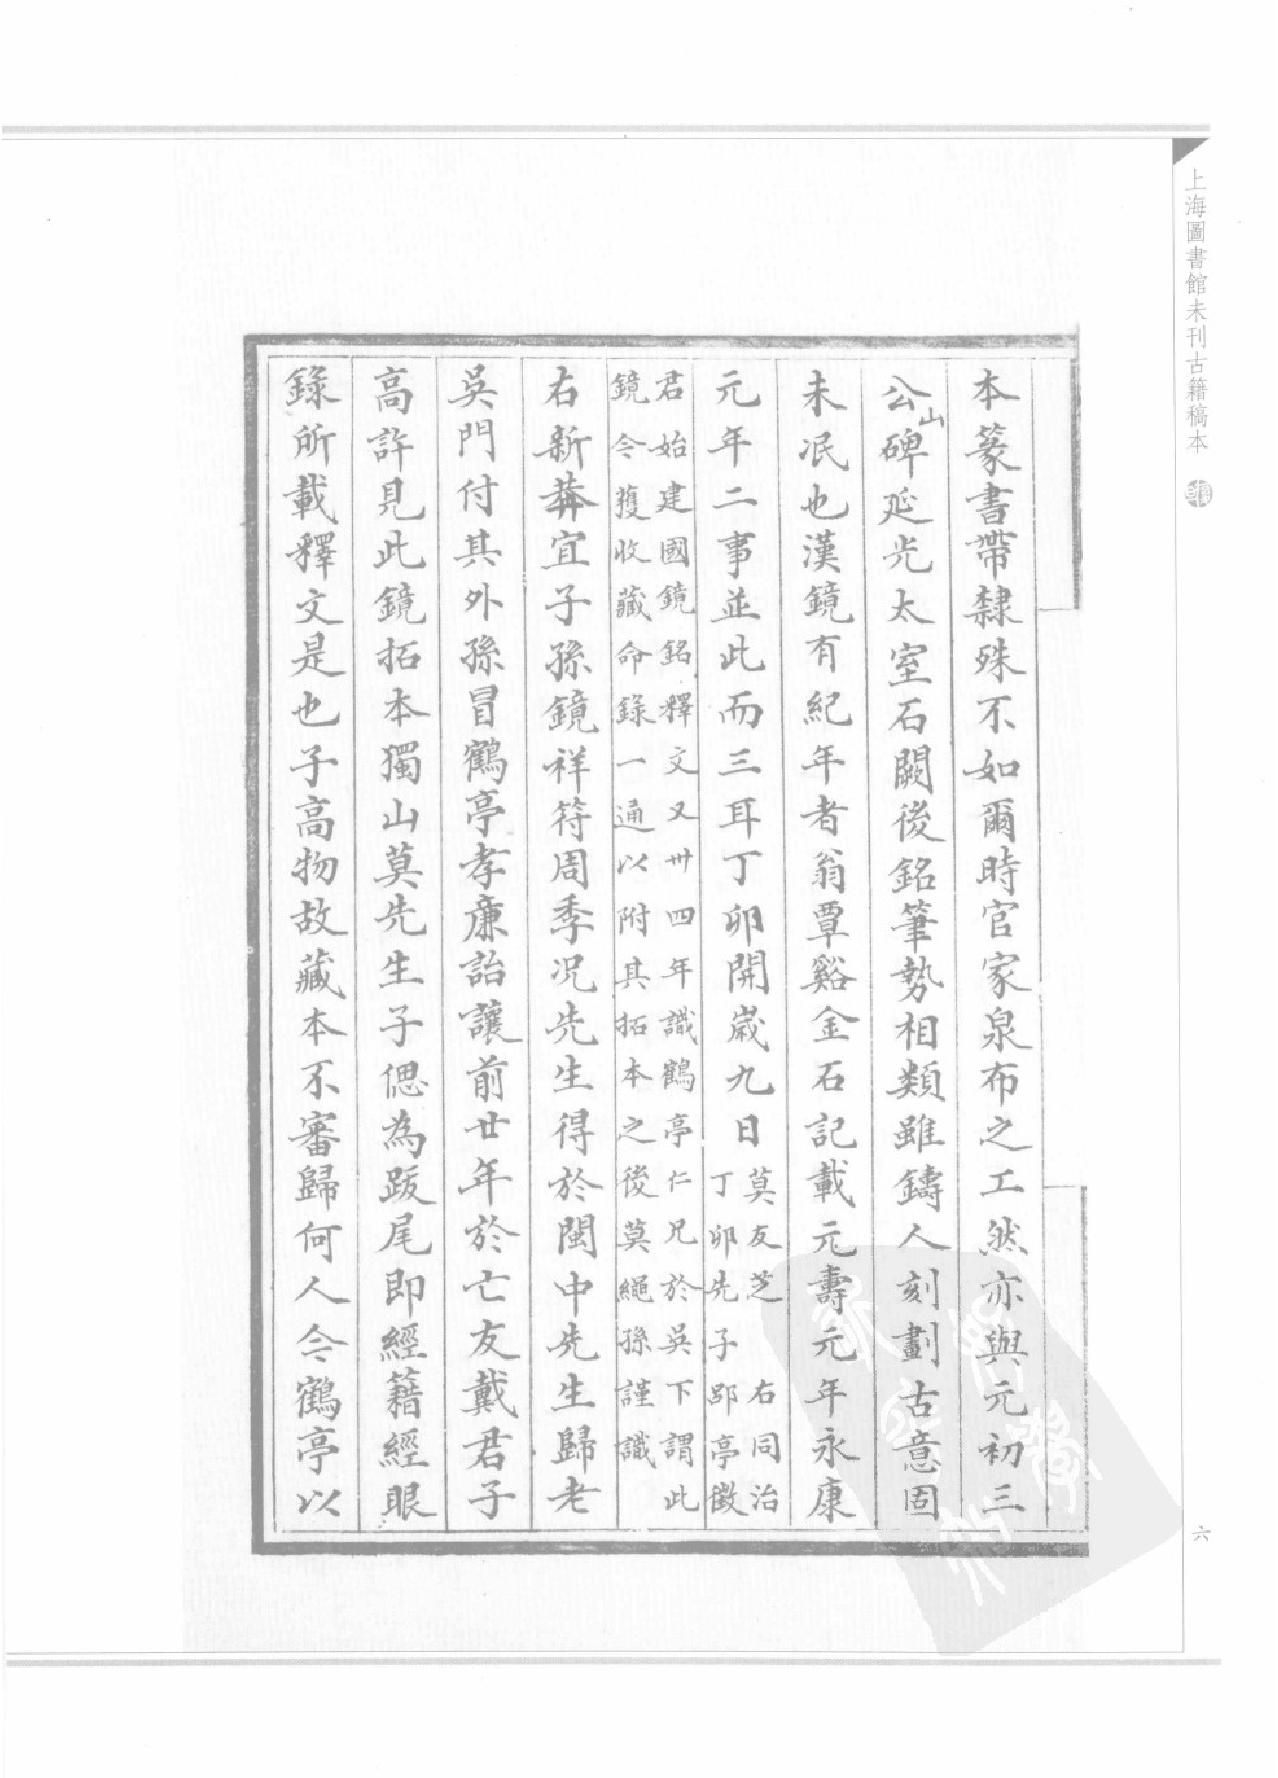 上海圖書館未刊古籍稿本
六
本篆書帶隸殊不如爾時官家泉布之工然亦與元初三
公山碑延光太室石闕後銘筆勢相類雖鑄人刻劃古意固
未泯也漢鏡有紀年者翁覃谿金石記載元壽元年永康
元年二事並此而三耳丁卯開歲九日莫友芝 右同治
丁卯先子郘亭徵
君始建國鏡銘釋文又卅四年識鶴亭仁兄於吳下謂此
鏡今獲收藏命錄一通以附其拓本之後莫繩孫謹識
右新莽宜子孫鏡祥符周季况先生得於閩中先生歸老
吳門付其外孫冒鶴亭孝廉詒讓前廿年於亡友戴君子
高許見此鏡拓本獨山莫先生子偲為跋尾即經籍經眼
錄所載釋文是也子高物故藏本不審歸何人今鶴亭以